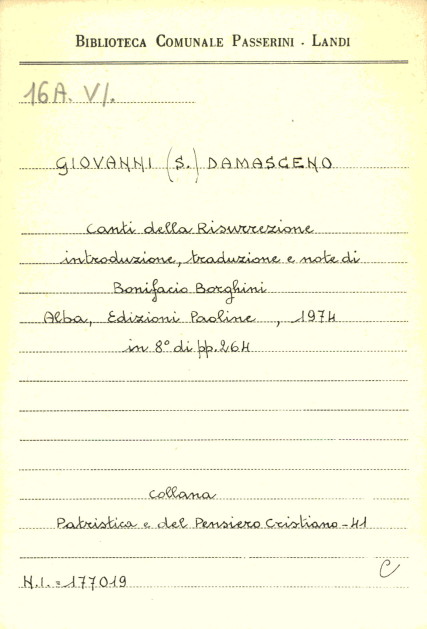 BIBLIOTECA COMUNALE PASSERINI - LANDI
16A. VI.
GIOVANNI (S.) DAMASCENO
Canti della Risurrezione
introduzione, traduzione e note di
Bonifacio Borghini
Alba, Edizioni Paoline , 1974
in 8° di pp. 264
Collana
Patristica e del Pensiero Cristiano - 41
C
N.I. = 177019